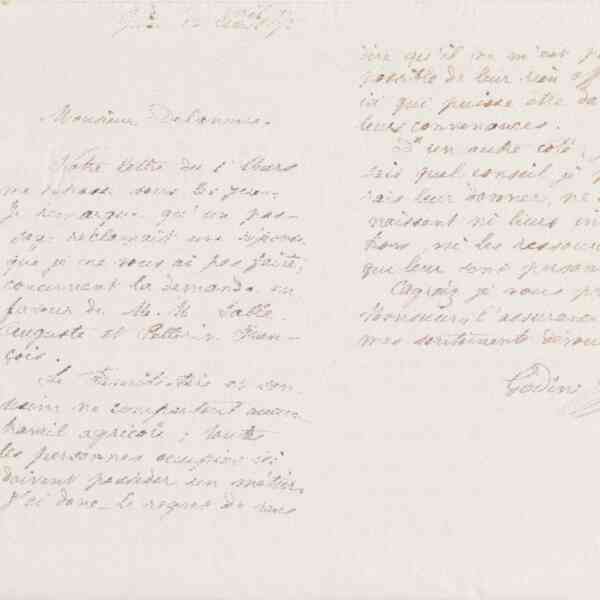 Monsieur Delanune.
Votre lettre du 1 Mars
me retrace sous les yeux
Je remarque qu'un pas-
sage réclamait une réponse
que je ne vous ai pas faite,
concernant la demande en
faveur de M. M. Sable
Auguste et Pelletier Fran-
çois.
Le Familistère et son
usine ne comportent aucun
travail agricole ; toutes
les personnes occupées ici
doivent posséder un métier.
J'ai donc le regret de vous
dire qu'il ne m'est p
possible de leur rien off
ici qui puisse être da
leurs convenances.
D'un autre côté
sais quel conseil je p
rais leur donner, ne
naissant ni leurs in
tions, ni les ressour
qui leur sont person
Agréez je vous pr
Monsieur, l'assurance
mes sentiments dévou
Godin